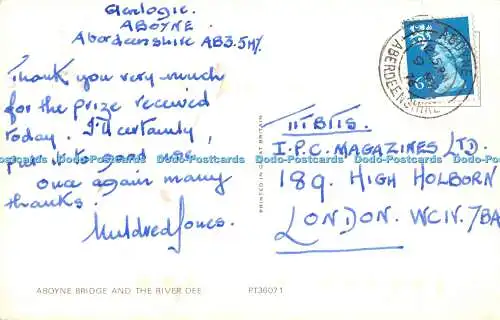 Aboyne.
Aberdeenshire AB3.5HY.
Thank you very much
for the prize received
today. I'll certainly,
put it to good use.
once again many
thanks.
Mildred Jones.
ABOYNE BRIDGE AND THE RIVER DEE
PT36071
PRINTED IN GREAT BRITAIN
ABOYNE
ABERDEENSHIRE
TITBITS.
I.P.C. MAGAZINES LTD.
189. HIGH HOLBORN
LONDON. WC1V. 7BA
Dodo-Postcards Dodo-Postcards Dodo-Postcards Dodo-Postcards Dodo-Postcards Dodo-Postcards